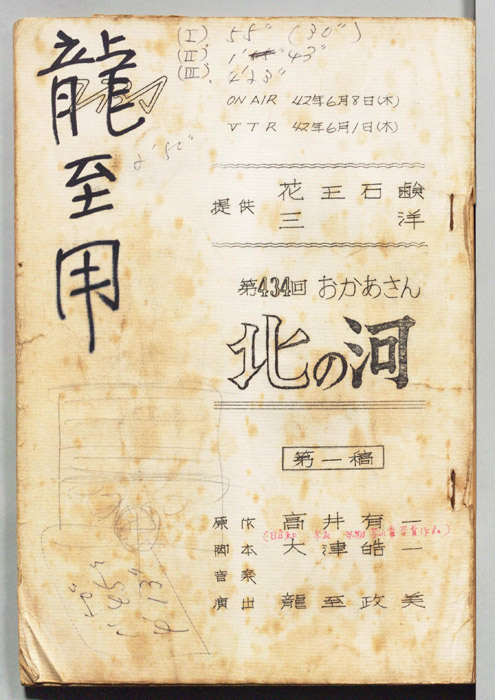 龍至用
(I) 55" (30")
(II) 43"
(III) 4'23"
ON AIR 42年6月8日(木)
VTR 42年6月1日(木)
2'50"
提供 花王石鹸
三洋
第434回 おかあさん
北の河
第一稿
原作 高井有一
脚本 大津皓一
音楽
演出 龍至政美